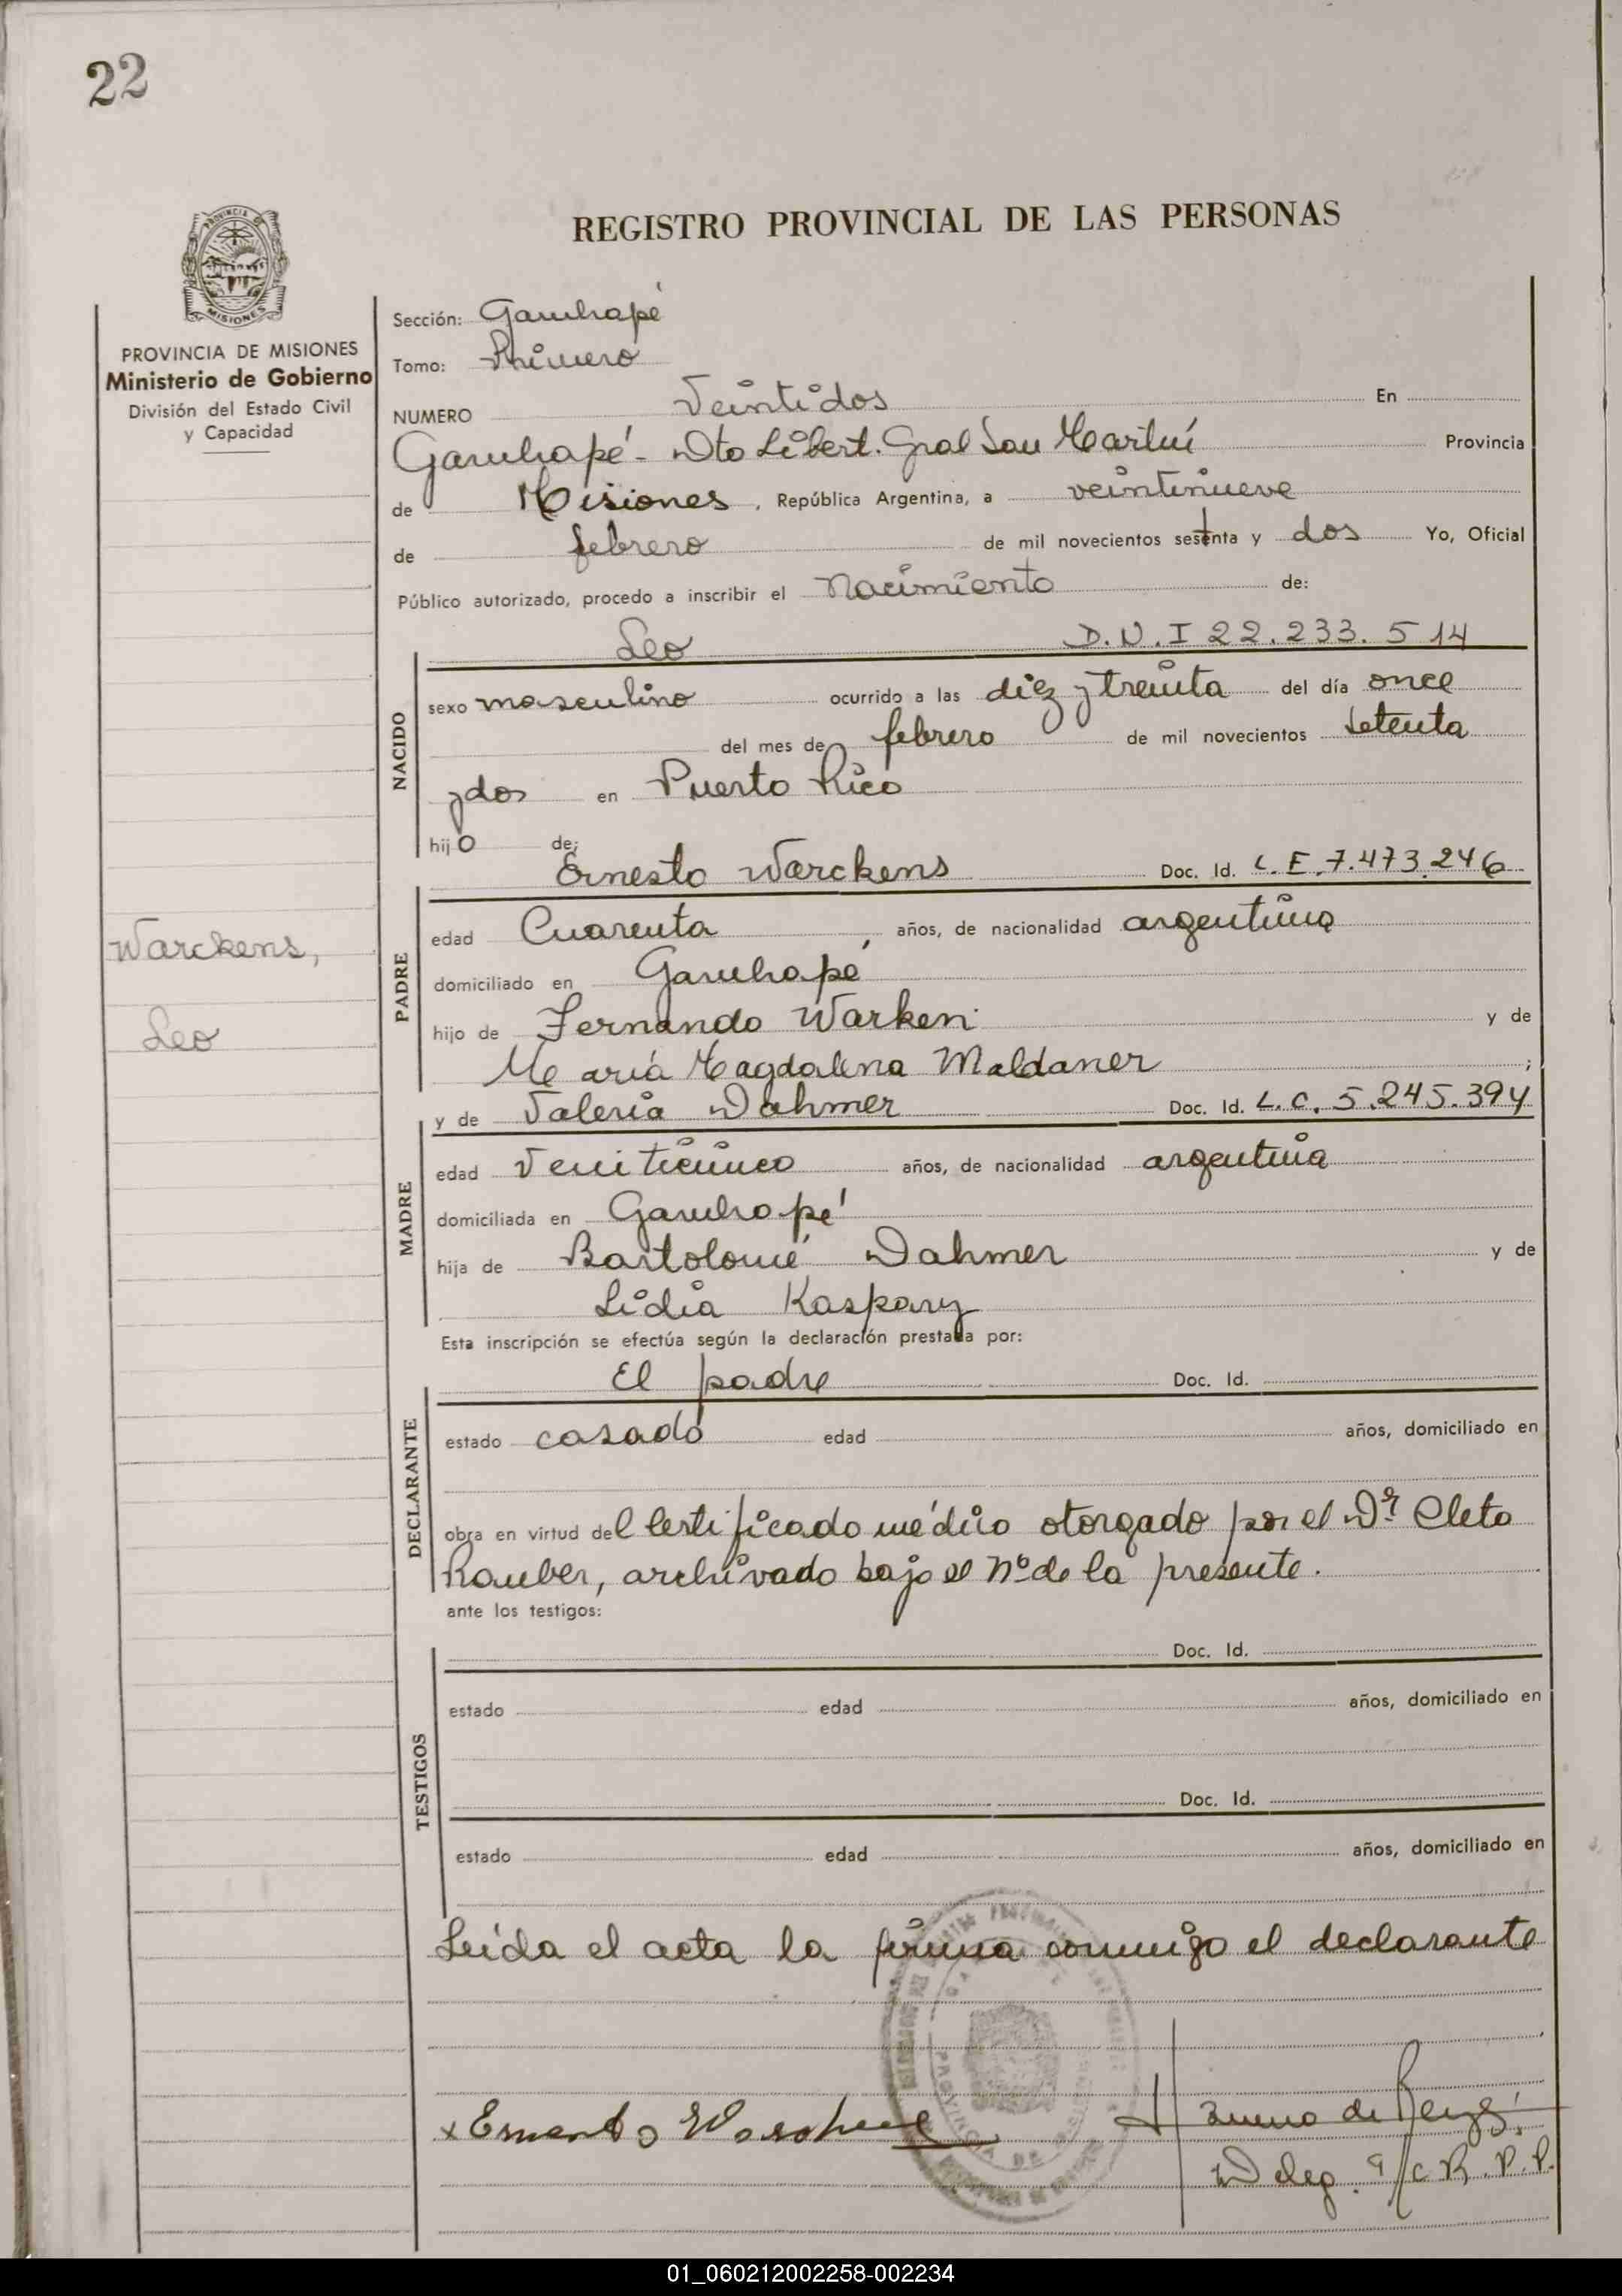 22
REGISTRO PROVINCIAL DE LAS PERSONAS
PROVINCIA DE
MISIONES
PROVINCIA DE MISIONES
Ministerio de Gobierno
División del Estado Civil
y Capacidad
Warckens,
Leo
Sección: Garuhapé
Tomo: Primero
NUMERO Veintidos En
Garuhapé - Dto Libert. Gral San Martín Provincia
de Misiones, República Argentina, a veintinueve
de febrero de mil novecientos setenta y dos Yo, Oficial
Público autorizado, procedo a inscribir el Nacimiento de:
Leo D.N.I 22.233.514
NACIDO
sexo masculino ocurrido a las diez y treinta del día once
del mes de febrero de mil novecientos setenta
y dos en Puerto Rico
hijo de:
Ernesto Warckens Doc. Id. L.E. 7.473.246
PADRE
edad Cuarenta años, de nacionalidad argentina
domiciliado en Garuhapé
hijo de Fernando Warken y de
María Magdalena Maldaner ;
y de Valeria Dahmer Doc. Id. L.C. 5.245.394
MADRE
edad Veinticinco años, de nacionalidad argentina
domiciliada en Garuhapé
hija de Bartolomé Dahmer y de
Lidia Kaspary
Esta inscripción se efectúa según la declaración prestada por:
El padre Doc. Id.
DECLARANTE
estado casado edad años, domiciliado en
obra en virtud del certificado médico otorgado por el Dr. Cleto
Rauber, archivado bajo el Nº de la presente.
ante los testigos:
Doc. Id.
TESTIGOS
estado edad años, domiciliado en
Doc. Id.
estado edad años, domiciliado en
Leída el acta la firma conmigo el declarante
PROVINCIA DE
x Ernesto
Deleg. a/c R.P.P.
01_060212002258-002234